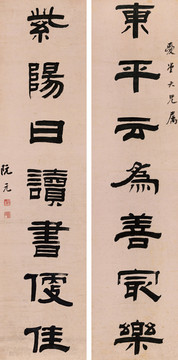 愛大兄属
東平云為善冣樂
紫陽曰讀書便佳
阮元